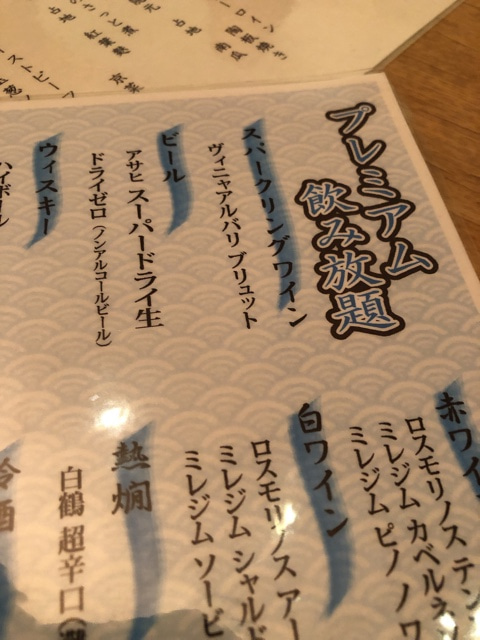 プレミアム
飲み放題
スパークリングワイン
ヴィニャアルバリ ブリュット
ビール
アサヒ スーパードライ生
ドライゼロ（ノンアルコールビール）
ウィスキー
ハイボール
赤ワイ
ロスモリノス テン
ミレジム カベルネ
ミレジム ピノ ノワ
白ワイン
ロスモリノス アー
ミレジム シャルド
ミレジム ソービ
熱燗
白鶴 超辛口
冷酒